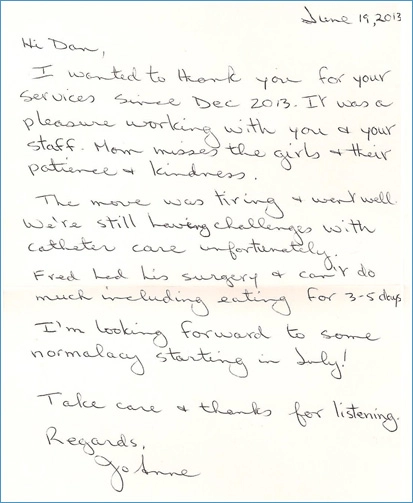 June 19, 2013
Hi Dan,
I wanted to thank you for your
services since Dec 2013. It was a
pleasure working with you & your
staff. Mom misses the girls & their
patience & kindness.
The move was tiring & went well.
We're still having challenges with
catheter care unfortunately.
Fred had his surgery & can't do
much including eating for 3-5 days
I'm looking forward to some
normalacy starting in July!
Take care & thanks for listening.
Regards,
JoAnne